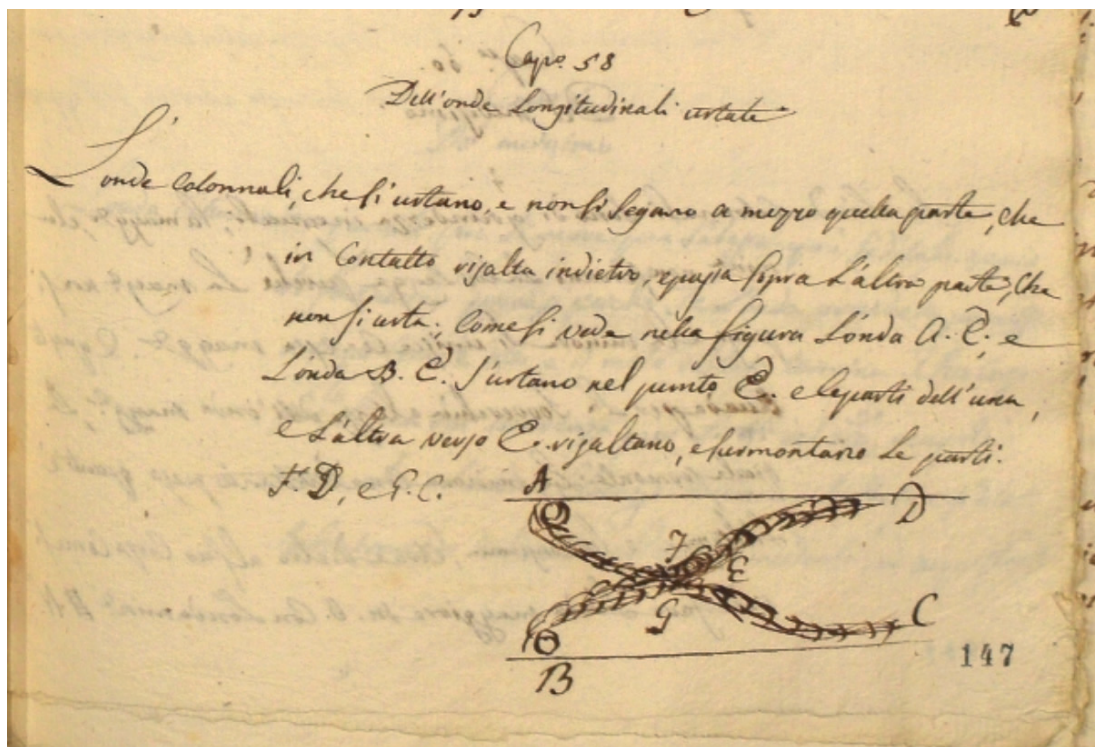 Capo. 58
Dell'onde Longitudinali urtate
L'onde Colonnali, che si urtano, e non si segano a mezzo quella parte, che
in Contatto risalta indietro, e passa sopra L'altra parte, che
non si urta. Come si vede nella figura L'onda A. E, e
L'onda B. E. s'urtano nel punto E. e le parti dell'una,
e L'altra verso E. risaltano, e sermontano le parti.
F. D, e G. C.
A
D
F
E
G
C
B
147